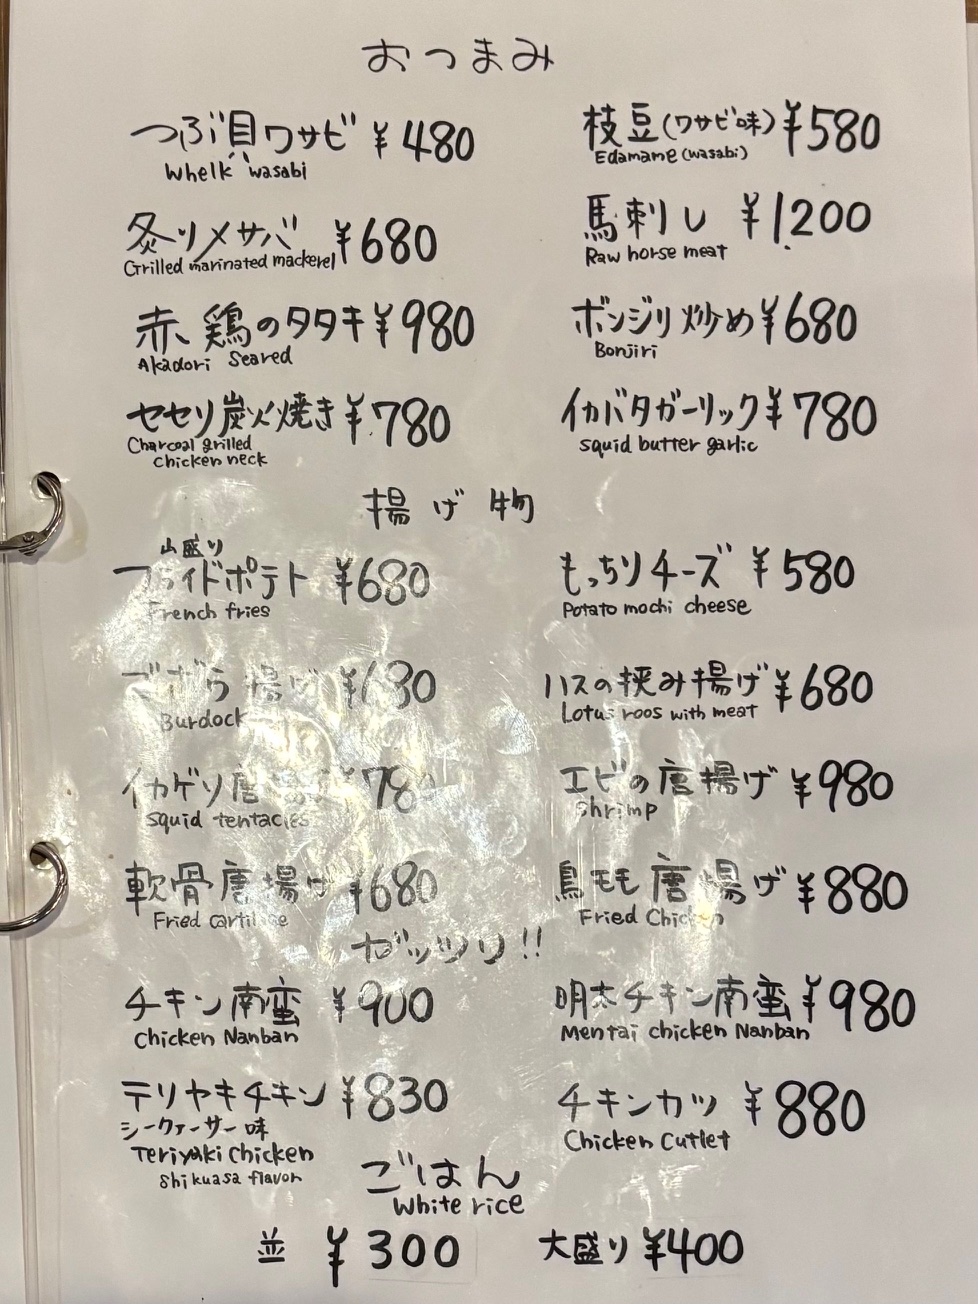 おつまみ
つぶ貝ワサビ ¥480
Whelk wasabi
枝豆(ワサビ味) ¥580
Edamame (wasabi)
炙りメサバ ¥680
Grilled marinated mackerel
馬刺し ¥1,200
Raw horse meat
赤鶏のタタキ ¥980
Akadori Seared
ボンジリ炒め ¥680
Bonjiri
セセリ炭火焼き ¥780
Charcoal grilled
chicken neck
イカバタガーリック ¥780
squid butter garlic
揚げ物
山盛り
フライドポテト ¥680
French fries
もっちりチーズ ¥580
Potato mochi cheese
揚げ ¥680
Burdock
ハスの挟み揚げ ¥680
Lotus roos with meat
イカゲソ唐揚 ¥780
squid tentacles
エビの唐揚げ ¥980
Shrimp
軟骨唐揚げ ¥680
Fried cartilage
鳥モモ唐揚げ ¥880
Fried Chicken
ガッツリ!!
チキン南蛮 ¥900
Chicken Nanban
明太チキン南蛮 ¥980
Mentai chicken Nanban
テリヤキチキン ¥830
シークァーサー味
Teriyaki Chicken
Shikuasa flavor
チキンカツ ¥880
Chicken Cutlet
ごはん
White rice
並 ¥300
大盛り ¥400